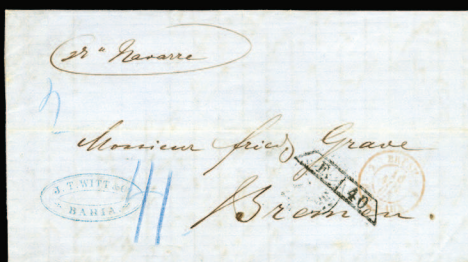 Navarre
Monsieur fried. Grave
Bremen.
J. T. WITT & Co
BAHIA
F. 1 40